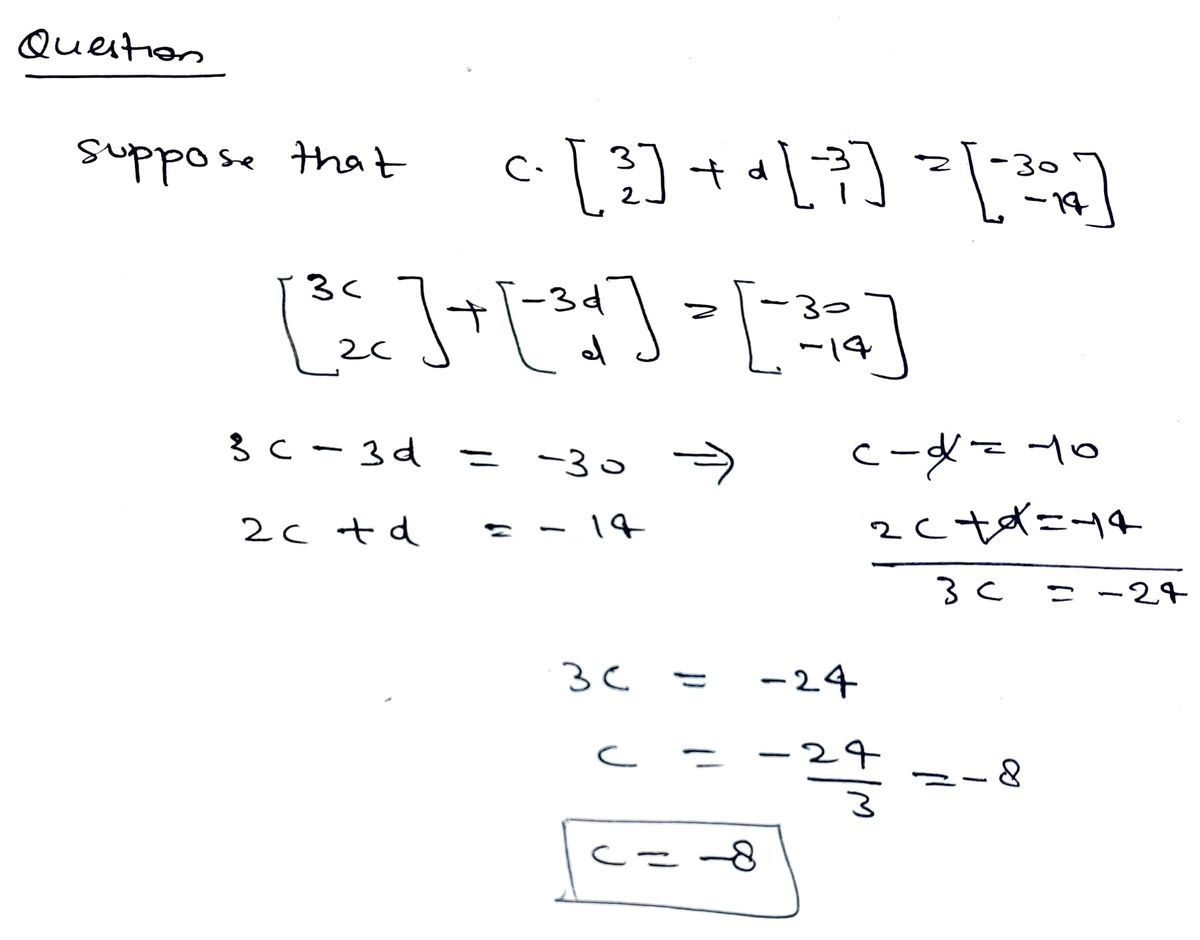 Question
suppose that c. [3 2] + d [-3 1] = [-30 -14]
[3c 2c] + [-3d d] = [-30 -14]
3c - 3d = -30 ⇒ c - d = -10
2c + d = -14 2c + d = -14
3c = -24
3c = -24
c = -24/3 = -8
c = -8